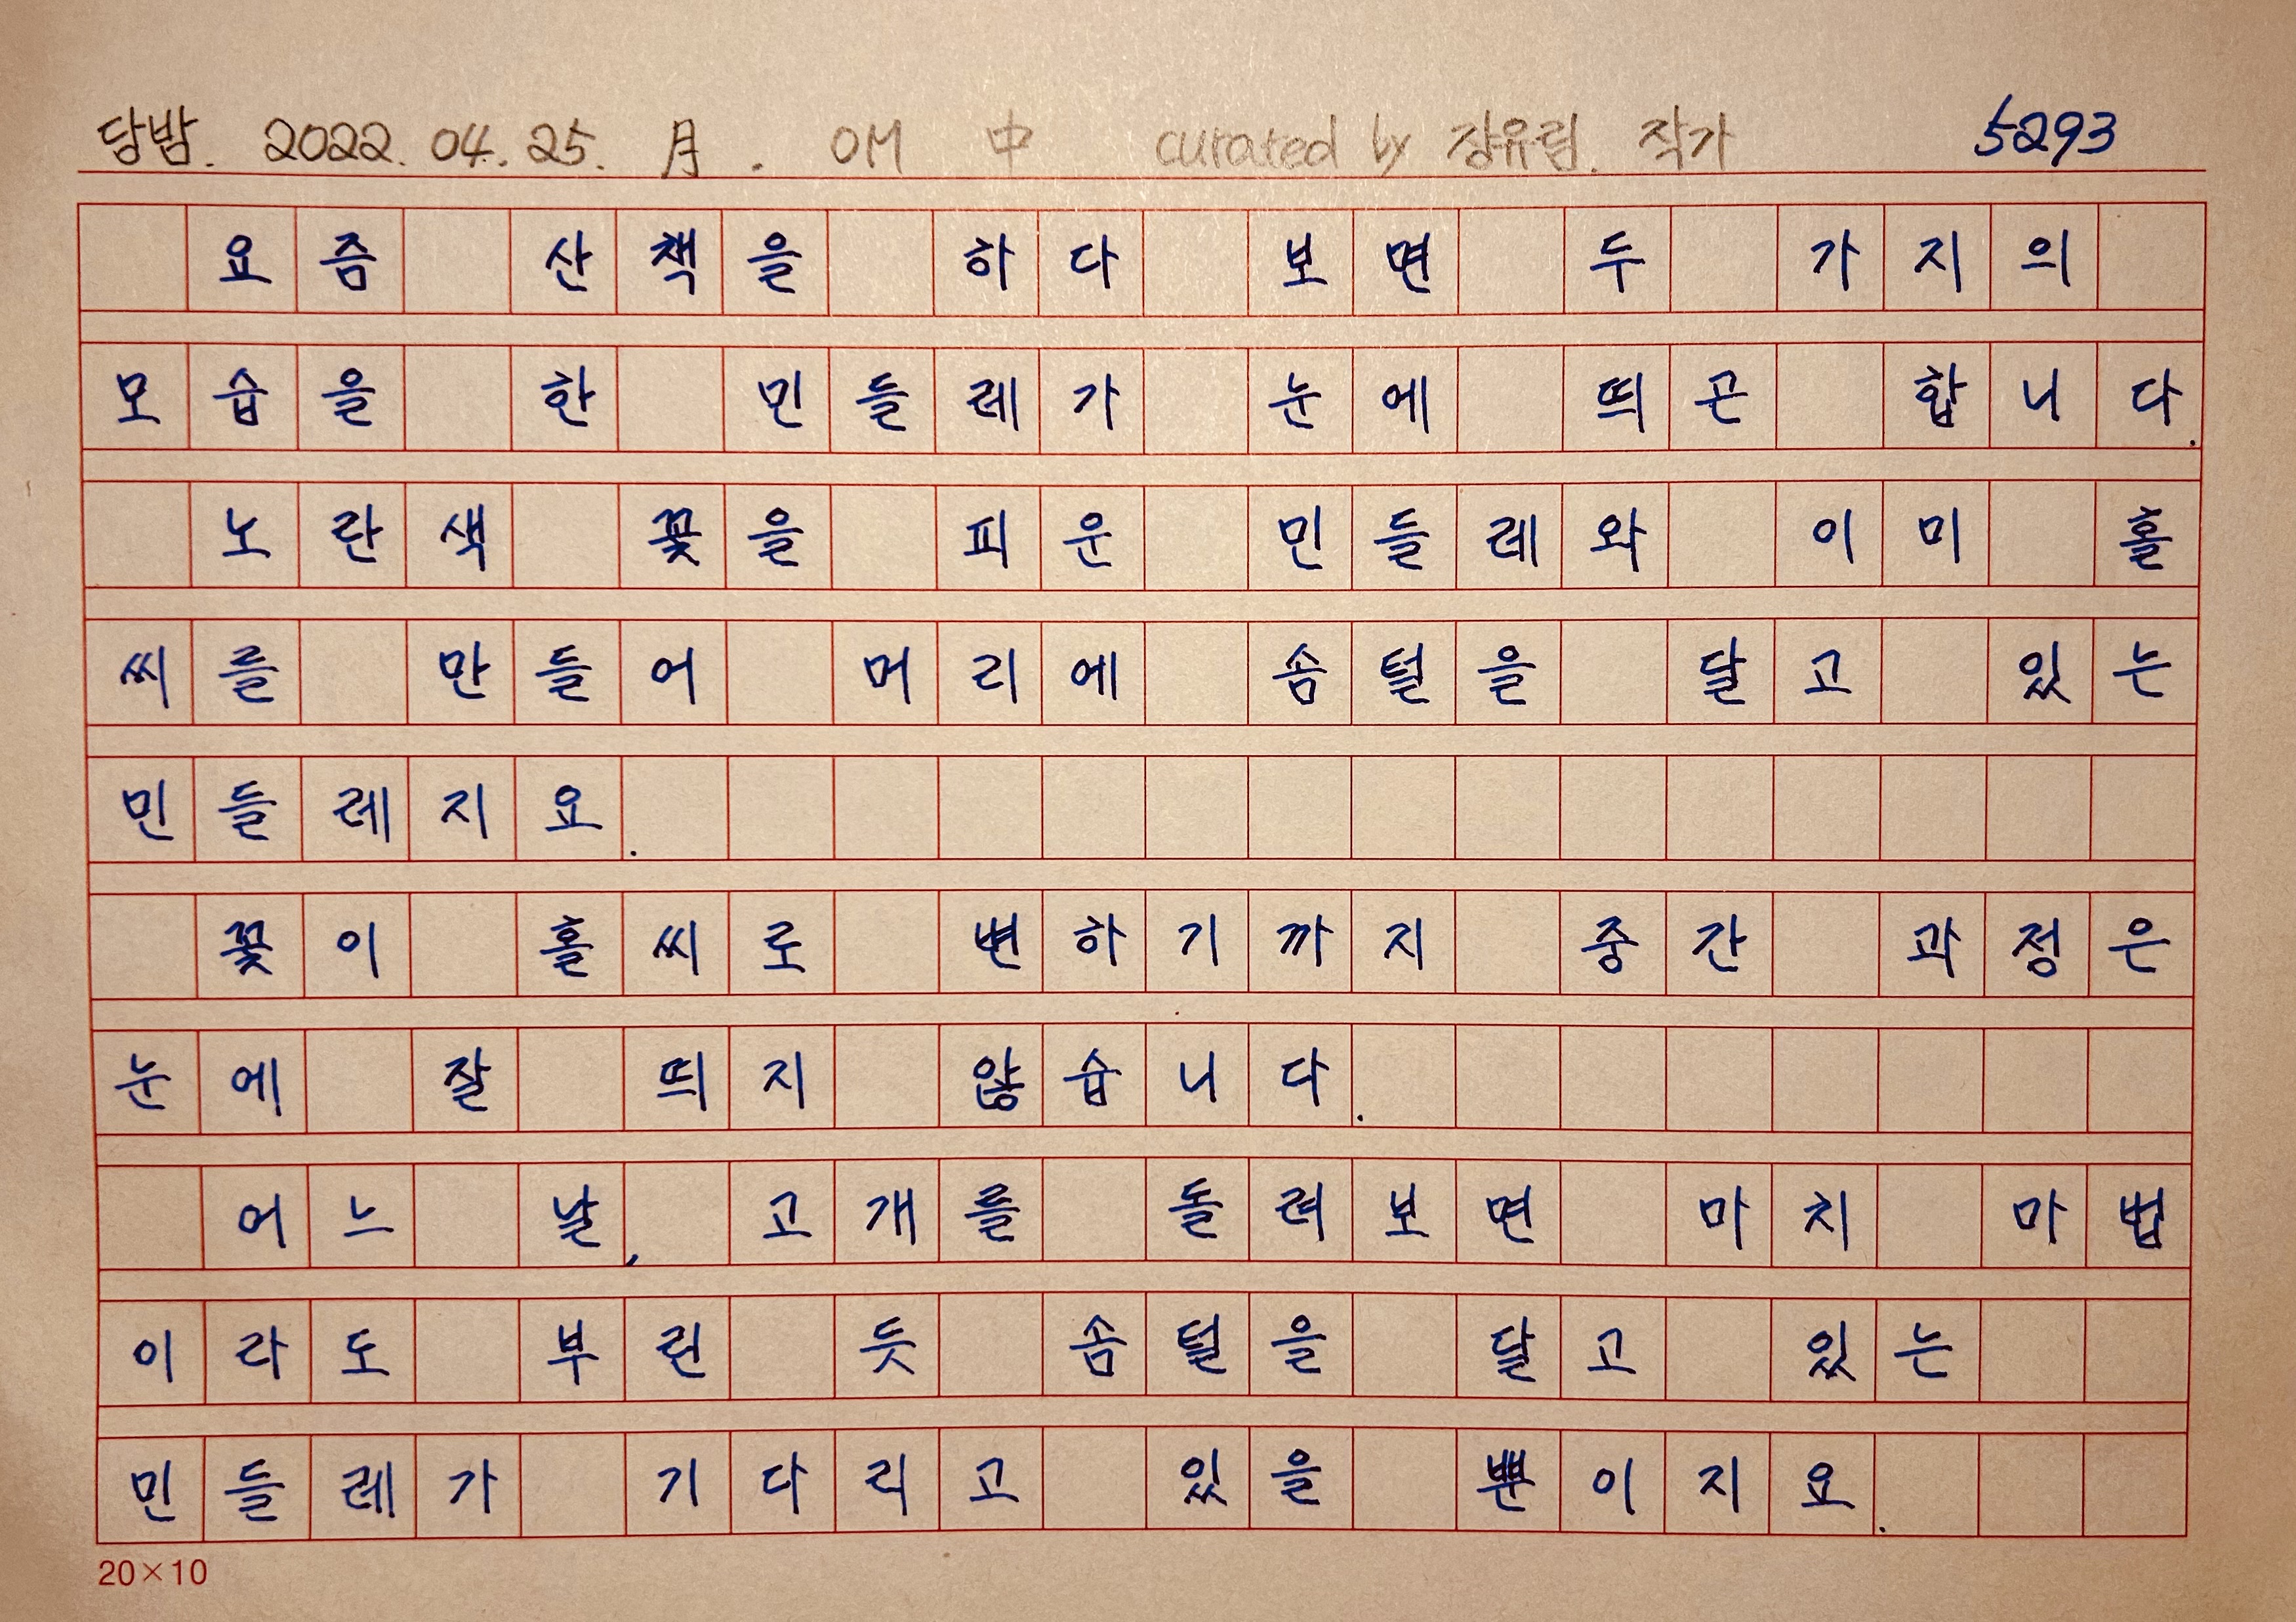 담밤. 2022. 04. 25. 月. OM 中 curated by 장유림. 작가 5293
요즘 산책을 하다 보면 두 가지의
모습을 한 민들레가 눈에 띄곤 합니다.
노란색 꽃을 피운 민들레와 이미 홀
씨를 만들어 머리에 솜털을 달고 있는
민들레지요.
꽃이 홀씨로 변하기까지 중간 과정은
눈에 잘 띄지 않습니다.
어느 날, 고개를 돌려보면 마치 마법
이라도 부린 듯 솜털을 달고 있는
민들레가 기다리고 있을 뿐이지요.
20×10